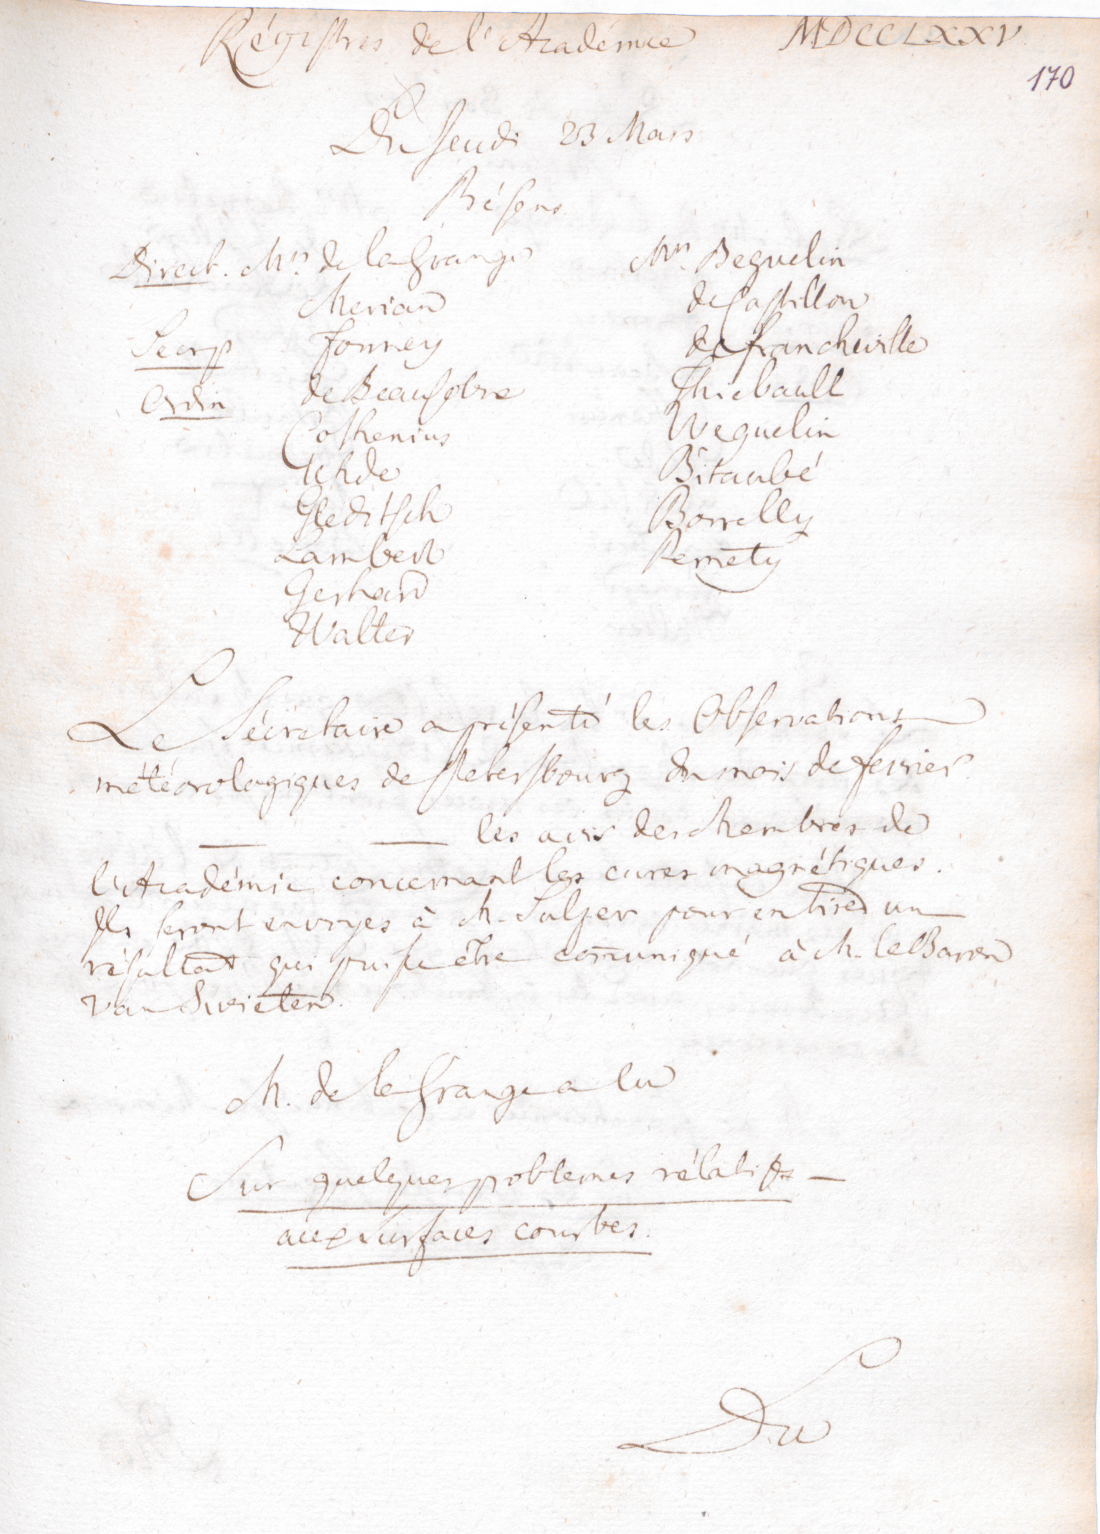 Régistres de l'Académie MDCCLXXV.
170
Du Jeudi 23 Mars
Présens
Direct. Mrs de la Grange
Merian
Secrp Formey
Ordin de Beausobre
Cothenius
Uhde
Gleditsch
Lambert
Gerhard
Walter
Mrs. Beguelin
de Castillon
de Francheville
Thiebault
Weguelin
Bitaubé
Borrelly
Pernety
Le Sécretaire a présenté les Observations
météorologiques de Petersbourg du mois de fevrier.
— — les avis des Membres de
l'Académie concernant les cures magnétiques.
Ils seront envoyes à M. Sulzer pour en tirer un
résultat qui puisse être comuniqué à M. le Baron
van Swieten.
M. de la Grange a lu
Sur quelques problemes rélatifs
aux surfaces courbes.
Du